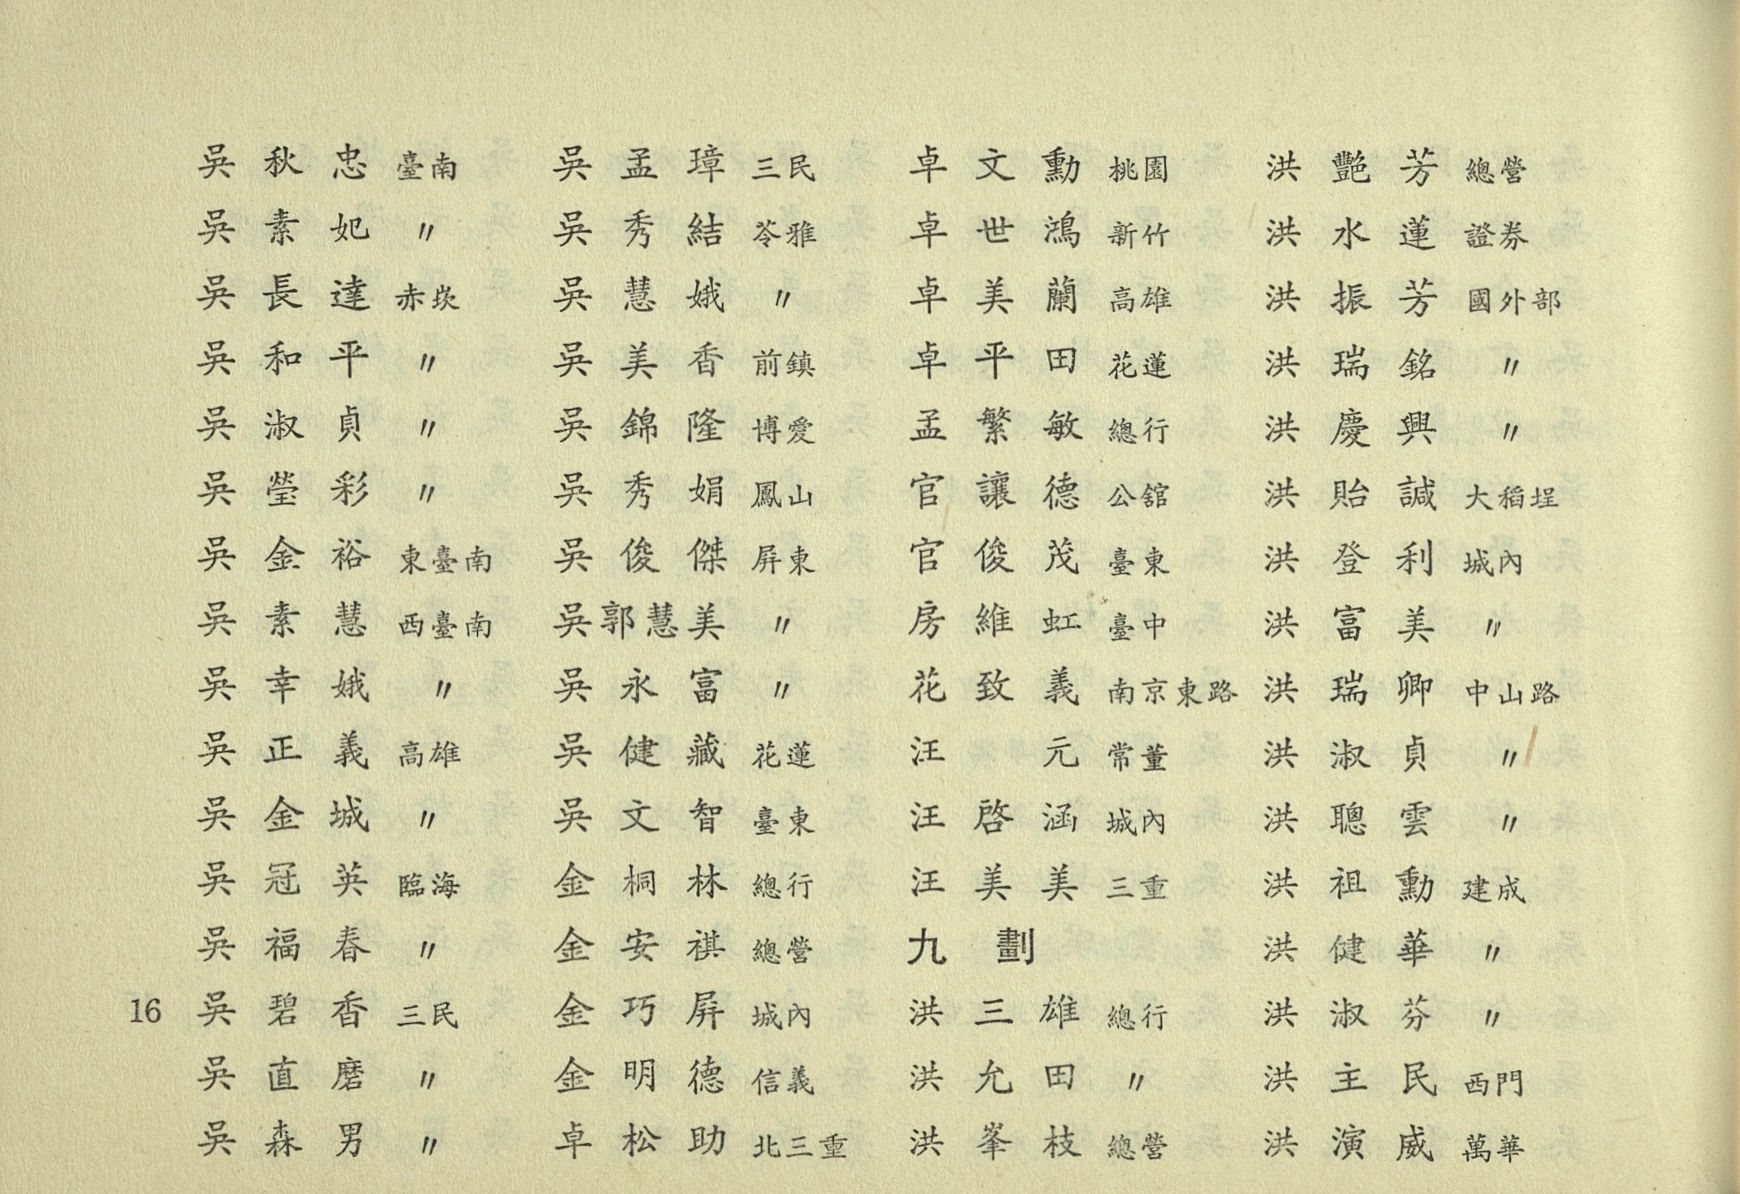 吳秋忠 臺南
吳素妃 〃
吳長達 赤崁
吳和平 〃
吳淑貞 〃
吳瑩彩 〃
吳金裕 東臺南
吳素慧 西臺南
吳幸娥 〃
吳正義 高雄
吳金城 〃
吳冠英 臨海
吳福春 〃
吳碧香 三民
吳直磨 〃
吳森男 〃
吳孟璋 三民
吳秀結 苓雅
吳慧娥 〃
吳美香 前鎮
吳錦隆 博愛
吳秀娟 鳳山
吳俊傑 屏東
吳郭慧美 〃
吳永富 〃
吳健藏 花蓮
吳文智 臺東
金桐林 總行
金安祺 總營
金巧屏 城內
金明德 信義
卓松助 北三重
卓文勳 桃園
卓世鴻 新竹
卓美蘭 高雄
卓平田 花蓮
孟繁敏 總行
官讓德 公館
官俊茂 臺東
房維虹 臺中
花致義 南京東路
汪元 常董
汪啓涵 城內
汪美美 三重
九劃
洪三雄 總行
洪允田 〃
洪峯枝 總營
洪艷芳 總營
洪水蓮 證券
洪振芳 國外部
洪瑞銘 〃
洪慶興 〃
洪貽諴 大稻埕
洪登利 城內
洪富美 〃
洪瑞卿 中山路
洪淑貞 〃
洪聰雲 〃
洪祖勳 建成
洪健華 〃
洪淑芬 〃
洪主民 西門
洪演威 萬華
16